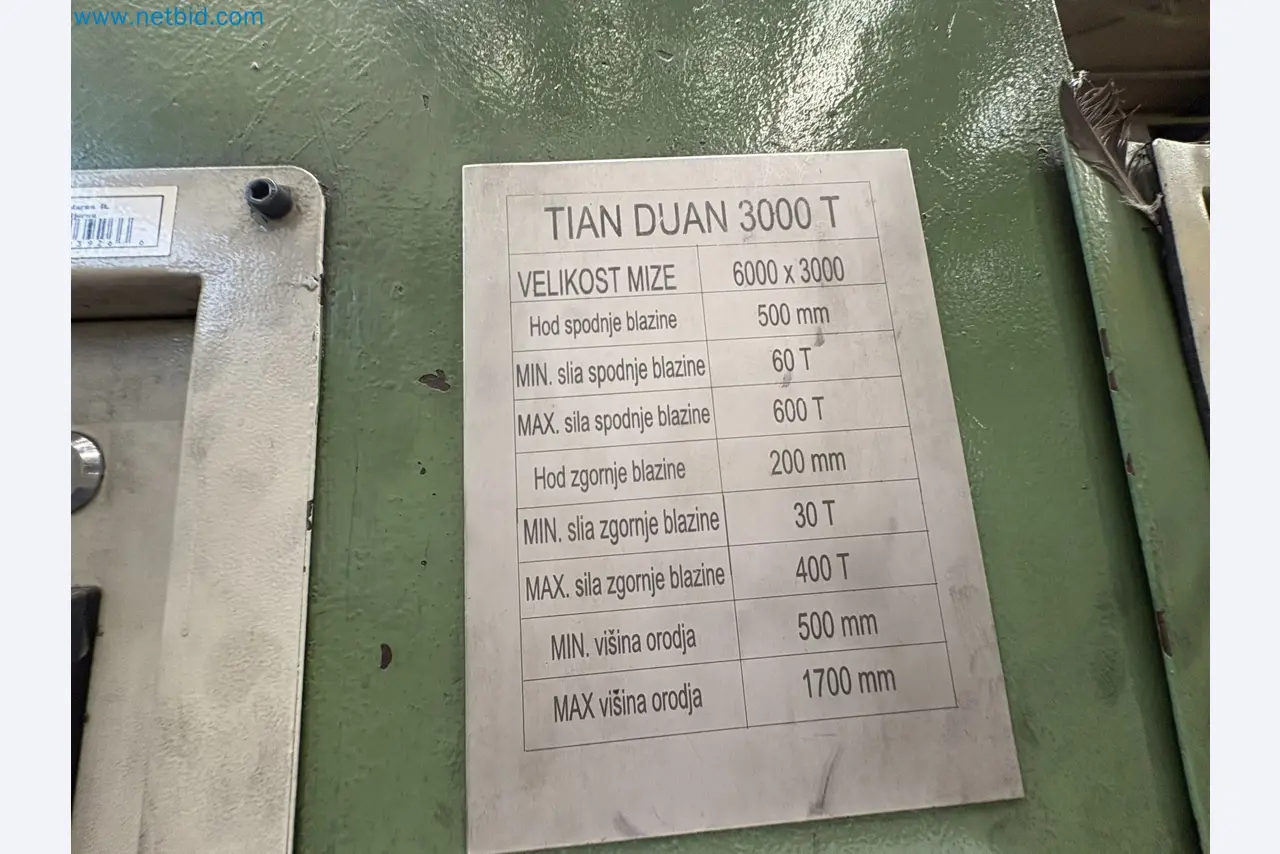 www.netbid.com
TIAN DUAN 3000 T
VELIKOST MIZE 6000 x 3000
Hod spodnje blazine 500 mm
MIN. slia spodnje blazine 60 T
MAX. sila spodnje blazine 600 T
Hod zgornje blazine 200 mm
MIN. slia zgornje blazine 30 T
MAX. sila zgornje blazine 400 T
MIN. višina orodja 500 mm
MAX višina orodja 1700 mm